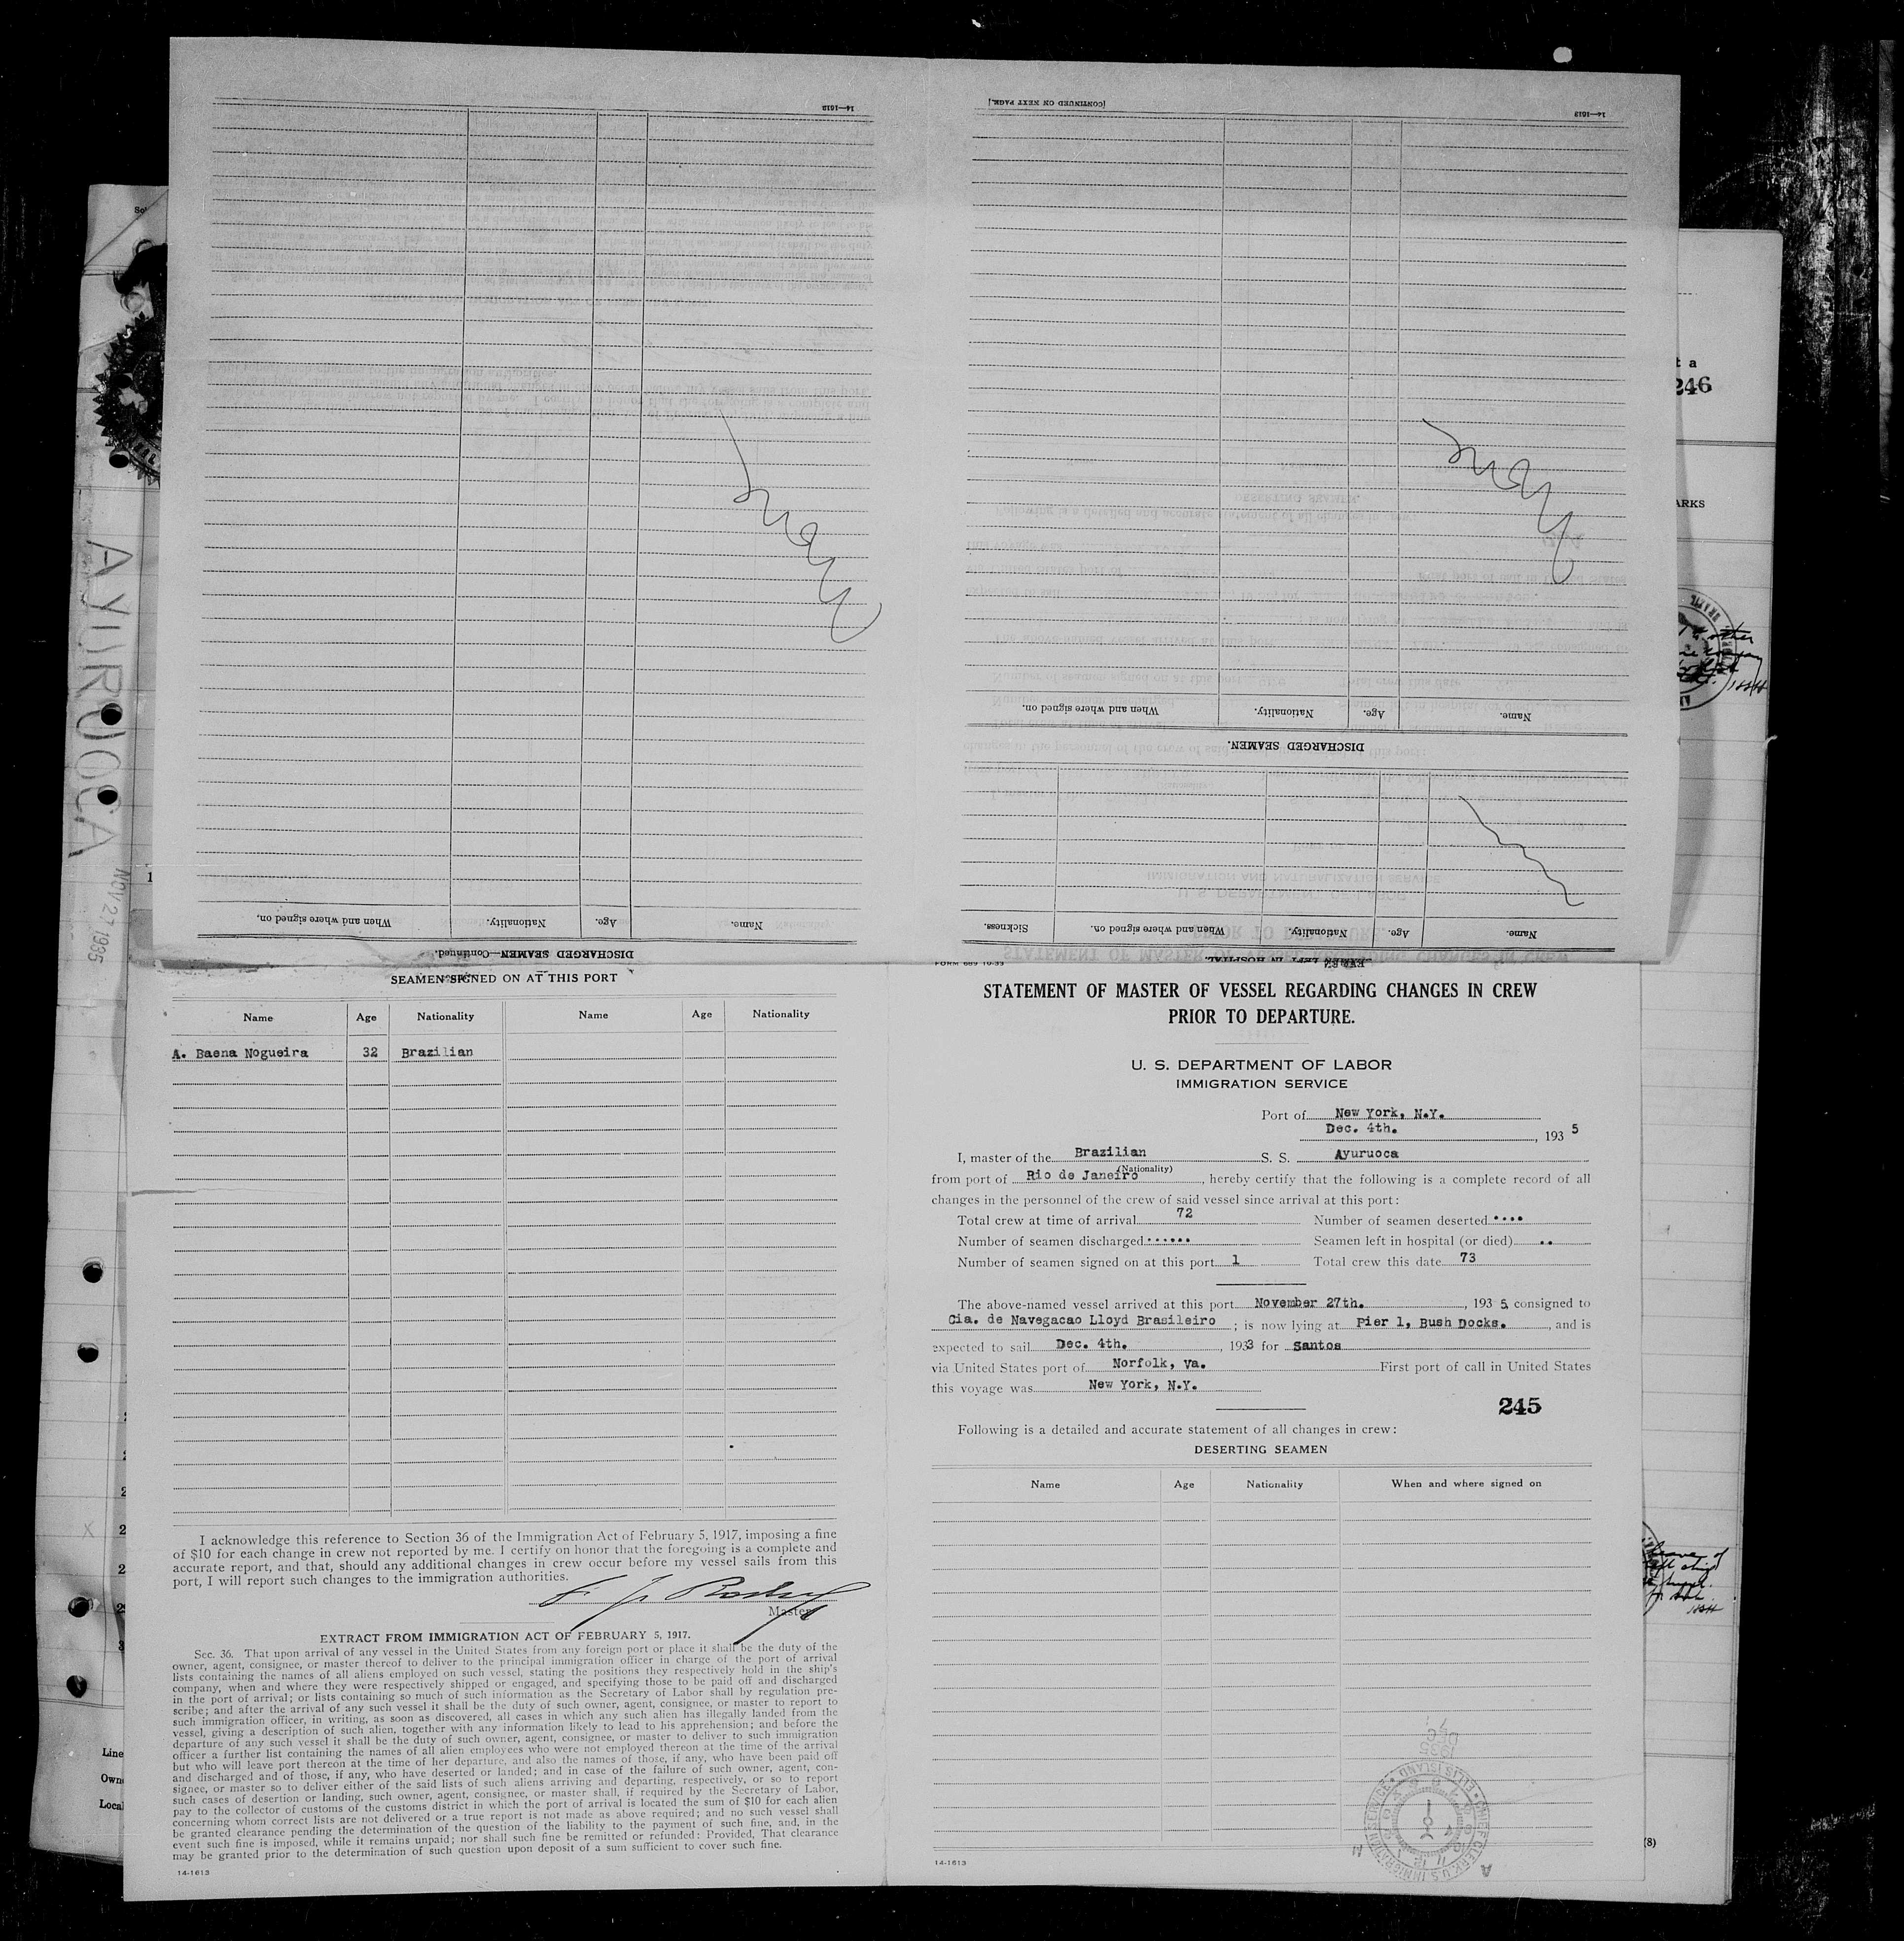 14—1613
[CONTINUED ON NEXT PAGE.]
14—1613
DISCHARGED SEAMEN.
Name.
Age.
Nationality.
When and where signed on.
Name.
Age.
Nationality.
When and where signed on.
Sickness.
DISCHARGED SEAMEN—Continued.
Name.
Age.
Nationality.
When and where signed on.
246
AYURUOCA
NOV 27 1935
SEAMEN SIGNED ON AT THIS PORT
Name Age Nationality Name Age Nationality
A. Baena Nogueira 32 Brazilian
I acknowledge this reference to Section 36 of the Immigration Act of February 5, 1917, imposing a fine
of $10 for each change in crew not reported by me. I certify on honor that the foregoing is a complete and
accurate report, and that, should any additional changes in crew occur before my vessel sails from this
port, I will report such changes to the immigration authorities.
Master
EXTRACT FROM IMMIGRATION ACT OF FEBRUARY 5, 1917.
Sec. 36. That upon arrival of any vessel in the United States from any foreign port or place it shall be the duty of the
owner, agent, consignee, or master thereof to deliver to the principal immigration officer in charge of the port of arrival
lists containing the names of all aliens employed on such vessel, stating the positions they respectively hold in the ship's
company, when and where they were respectively shipped or engaged, and specifying those to be paid off and discharged
in the port of arrival; or lists containing so much of such information as the Secretary of Labor shall by regulation pre-
scribe; and after the arrival of any such vessel it shall be the duty of such owner, agent, consignee, or master to report to
such immigration officer, in writing, as soon as discovered, all cases in which any such alien has illegally landed from the
vessel, giving a description of such alien, together with any information likely to lead to his apprehension; and before the
departure of any such vessel it shall be the duty of such owner, agent, consignee, or master to deliver to such immigration
officer a further list containing the names of all alien employees who were not employed thereon at the time of the arrival
but who will leave port thereon at the time of her departure, and also the names of those, if any, who have been paid off
and discharged and of those, if any, who have deserted or landed; and in case of the failure of such owner, agent, con-
signee, or master so to deliver either of the said lists of such aliens arriving and departing, respectively, or so to report
such cases of desertion or landing, such owner, agent, consignee, or master shall, if required by the Secretary of Labor,
pay to the collector of customs of the customs district in which the port of arrival is located the sum of $10 for each alien
concerning whom correct lists are not delivered or a true report is not made as above required; and no such vessel shall
be granted clearance pending the determination of the question of the liability to the payment of such fine, and, in the
event such fine is imposed, while it remains unpaid; nor shall such fine be remitted or refunded: Provided, That clearance
may be granted prior to the determination of such question upon deposit of a sum sufficient to cover such fine.
14-1613
STATEMENT OF MASTER OF VESSEL REGARDING CHANGES IN CREW
PRIOR TO DEPARTURE.
U. S. DEPARTMENT OF LABOR
IMMIGRATION SERVICE
Port of New York, N.Y.
Dec. 4th. , 193 5
I, master of the Brazilian S. S. Ayuruoca
(Nationality)
from port of Rio de Janeiro , hereby certify that the following is a complete record of all
changes in the personnel of the crew of said vessel since arrival at this port:
Total crew at time of arrival 72 Number of seamen deserted ....
Number of seamen discharged ...... Seamen left in hospital (or died) ..
Number of seamen signed on at this port 1 Total crew this date 73
The above-named vessel arrived at this port November 27th. , 193 5, consigned to
Cia. de Navegacao Lloyd Brasileiro ; is now lying at Pier 1, Bush Docks. , and is
expected to sail Dec. 4th. , 1933 for Santos
via United States port of Norfolk, Va. First port of call in United States
this voyage was New York, N.Y.
245
Following is a detailed and accurate statement of all changes in crew:
DESERTING SEAMEN
Name Age Nationality When and where signed on
CHIEF CLERK, U.S. IMMIGRATION SERVICE
ELLIS ISLAND
14-1613